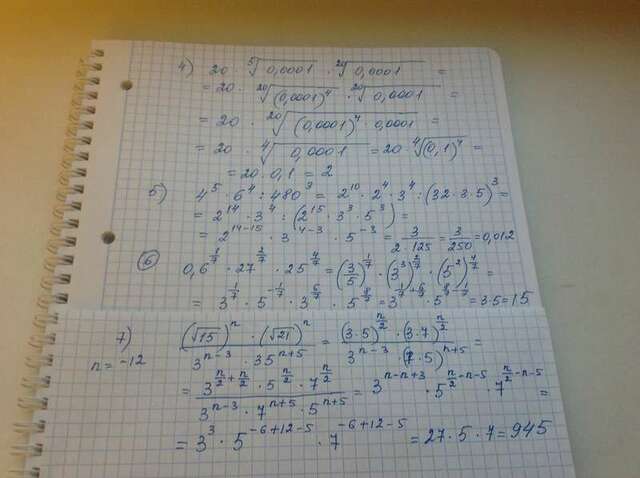 4) 20 · ⁵√0,0001 · ²⁰√0,0001 =
= 20 · ²⁰√(0,0001)⁴ · ²⁰√0,0001 =
= 20 · ²⁰√(0,0001)⁴ · 0,0001 =
= 20 · ⁴√0,0001 = 20 · ⁴√(0,1)⁴ =
= 20 · 0,1 = 2
5) 4⁵ · 6⁴ : 480³ = 2¹⁰ · 2⁴ · 3⁴ : (32 · 3 · 5)³ =
= 2¹⁴ · 3⁴ : (2¹⁵ · 3³ · 5³) =
= 2^(14-15) · 3^(4-3) · 5^(-3) = 3/(2 · 125) = 3/250 = 0,012
6) 0,6^(1/7) · 27^(2/7) · 25^(4/7) = (3/5)^(1/7) · (3³)^(2/7) · (5²)^(4/7) =
= 3^(1/7) · 5^(-1/7) · 3^(6/7) · 5^(8/7) = 3^(1/7+6/7) · 5^(8/7-1/7) = 3·5 = 15
7) ((√15)ⁿ · (√21)ⁿ)/(3^(n-3) · 35^(n+5)) = ((3·5)^(n/2) · (3·7)^(n/2))/(3^(n-3) · (7·5)^(n+5)) =
n = -12
= (3^(n/2+n/2) · 5^(n/2) · 7^(n/2))/(3^(n-3) · 7^(n+5) · 5^(n+5)) = 3^(n-n+3) · 5^(n/2-n-5) · 7^(n/2-n-5) =
= 3³ · 5^(-6+12-5) · 7^(-6+12-5) = 27 · 5 · 7 = 945